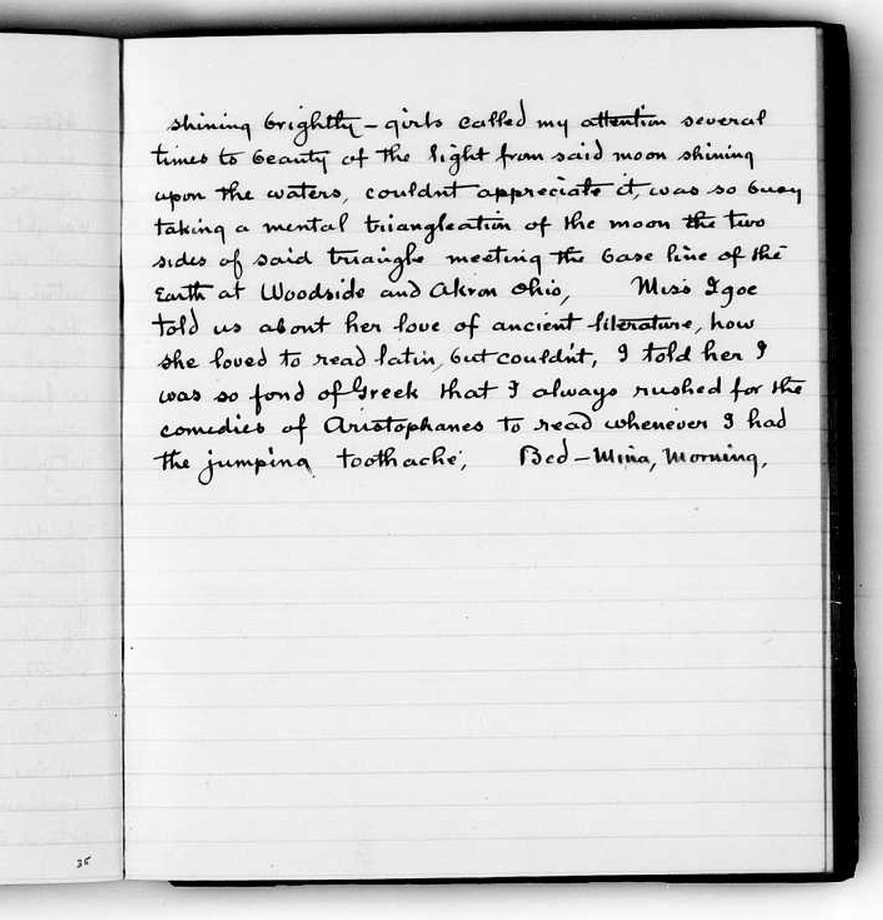 shining brightly – girls called my attention several
times to beauty of the light from said moon shining
upon the waters, couldnt appreciate it, was so busy
taking a mental triangleation of the moon the two
sides of said triangle meeting the base line of the
Earth at Woodside and Akron Ohio, Miss Igoe
told us about her love of ancient literature, how
she loved to read latin, but couldn't, I told her I
was so fond of Greek that I always rushed for the
comedies of Aristophanes to read whenever I had
the jumping toothache; Bed – Mina, Morning,
35